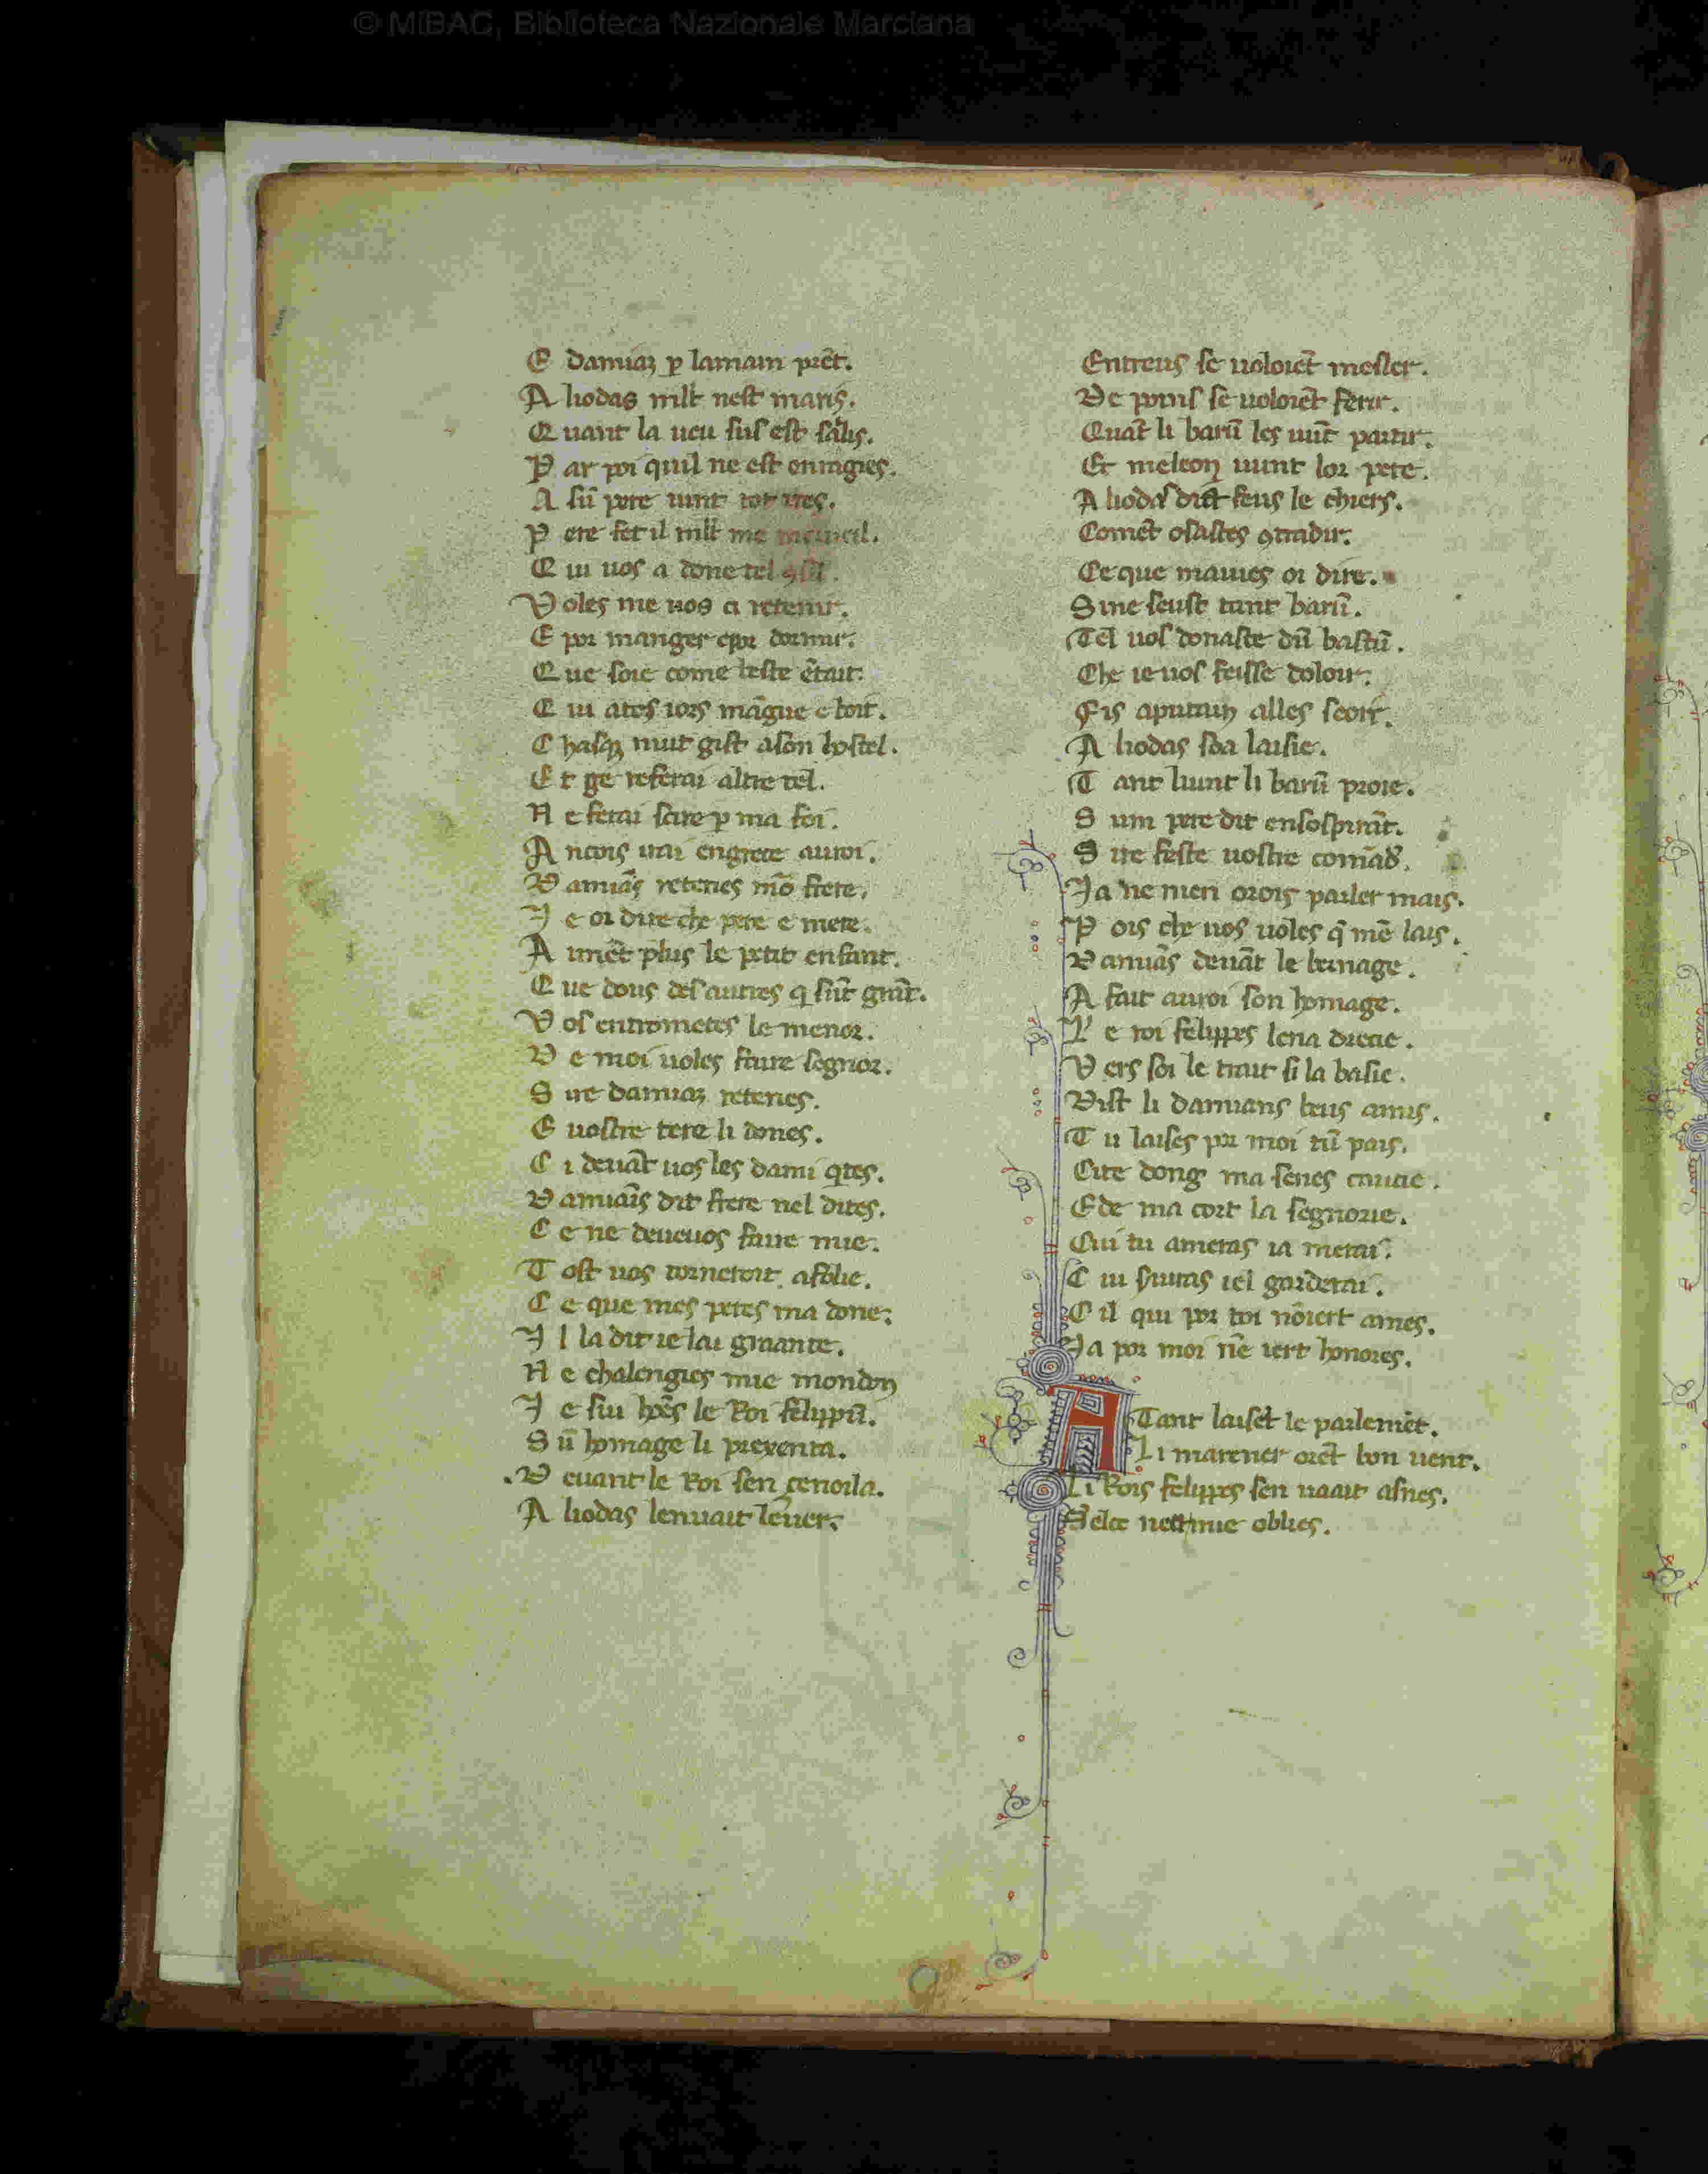 © MiBAC, Biblioteca Nazionale Marciana
E damiaꝫ ꝑ lamain prēt.
A liodas mlt nest maris.
Q uant la ueu sus est salis.
P ar poi quil ne est enragies.
A sū pere uint tot ires.
P ere fet il mlt me merueil.
Q ui uos a done tel ꝯsil.
V oles me uos ci retenir.
E por manger epor dormir.
Q ue soie come beste ētait.
Q ui ates iors māgue e boit.
C hasqꝫ nuit gist ason hostel.
E t ge referai altre tel.
N e ferai sire ꝑ ma foi.
A ncois irai engrece auroi.
D amiās retenes mō frere.
I e oi dire che pere e mere.
A imēt plus le petit enfant.
Q ue dous des autres q sūt grāt.
V os entrometes le menor.
D e moi uoles faire segnor.
S ire damiaꝫ retenes.
E uostre tere li dones.
C i deuāt uos les dami qtes.
D amiāis dit frere nel dites.
C e ne deueuos faire mie.
T ost uos torneroit afolie.
C e que mes peres ma done.
I l la dit ie lai graante.
N e chalengies mie mondon
I e sui hōes le Roi felippū.
S ū homage li presenta.
D euant le Roi sen genoila.
A liodas lenuait leuer.
Entreus se uoloiēt mesler.
De poins se uoloiēt ferir.
Quāt li barū les uūt partir.
Et meleon uunt lor pere.
A liodas dist feus le chiers.
Comēt osastes ꝯtradir.
Ceque mauies oi dire.
Sine feust tant barū.
Tel uos donaste dū bastū.
Che ie uos feisse dolour.
Fis aputain alles seoir.
A liodas soa laisie.
T ant liunt li barū proie.
S um pere dit ensospirāt.
S ire feste uostre comād.
Ia ne men orois parler mais.
P ois che uos uoles q̄ mē lais.
D amiās deuāt le bernage.
A fait auroi son homage.
L e roi felippes lena drecie.
V ers soi le trait si la basie.
Dist li damians beus amis.
T u laises por moi tū pais.
Cite dong ma senescaucie.
Ede ma cort la segnorie.
Cui tu ameras ia merai.
C ui huiras iel garderai.
C il qui por toi nōiert ames.
Ia por moi nē iert honores.
A Tant laisēt le parlemēt.
Li marener orēt bon uent.
Li Rois felippes sen uaait asnes.
Selce mie oblies.